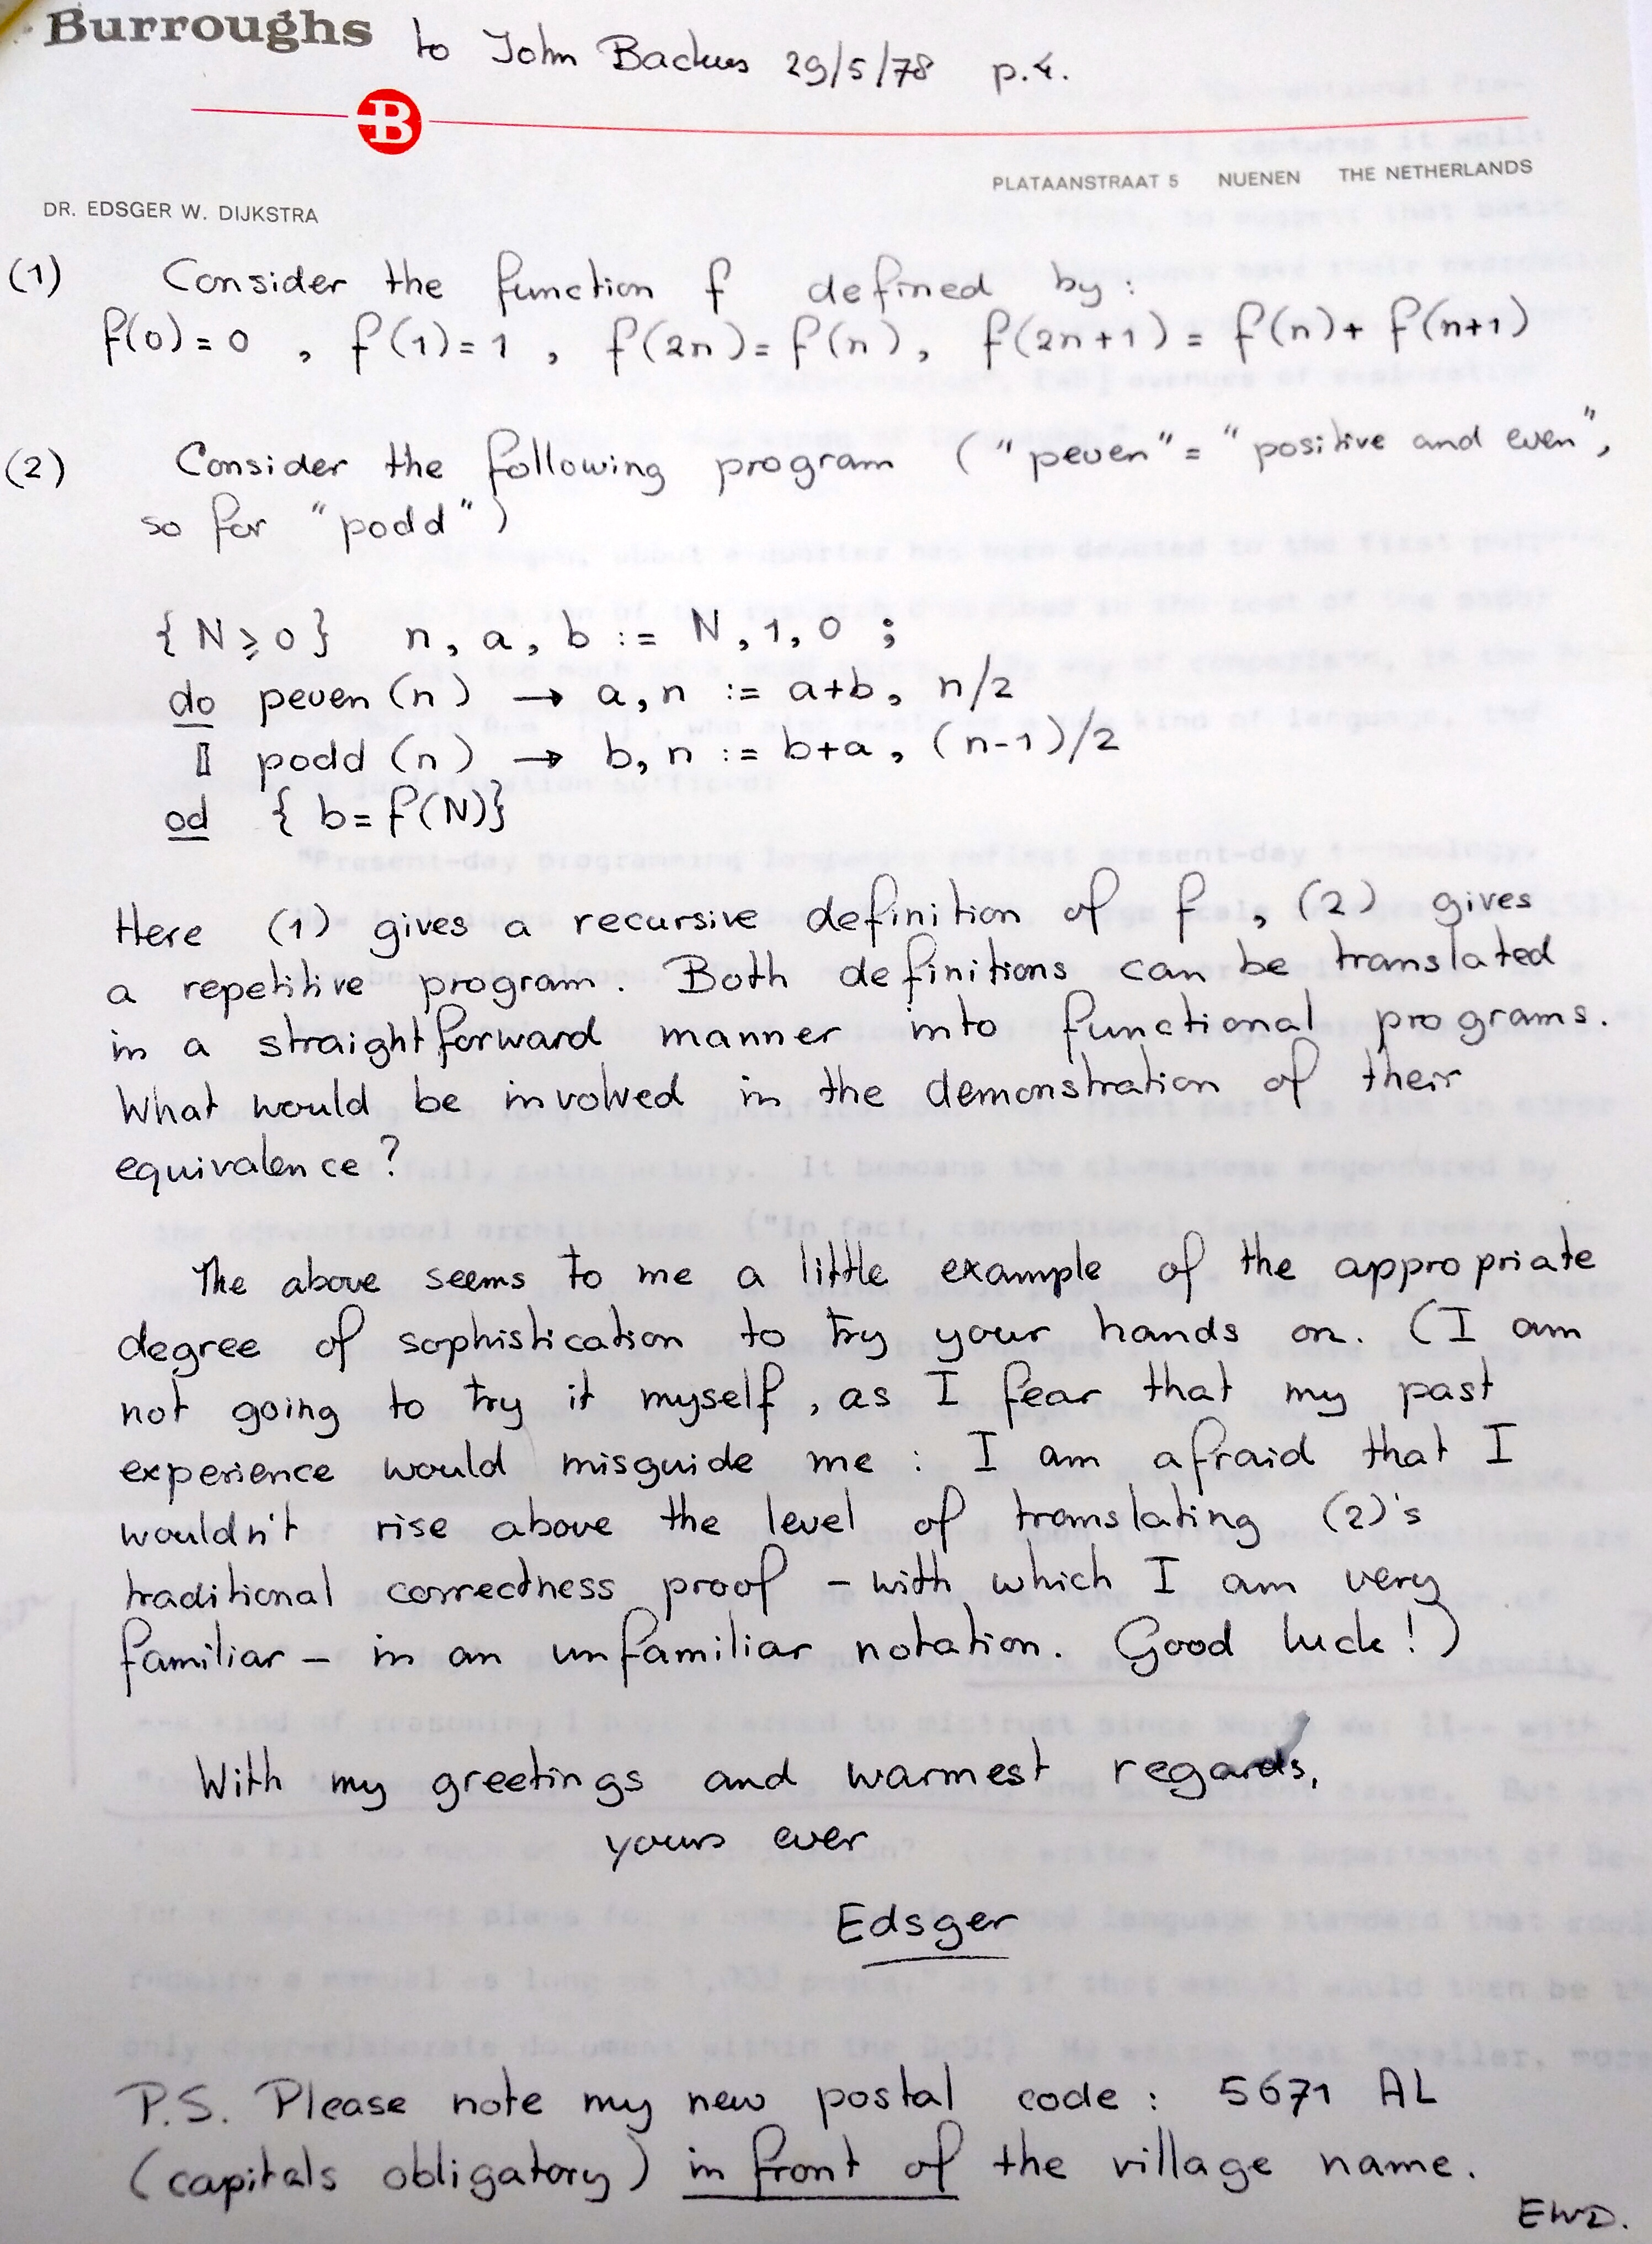 Burroughs to John Backus 29/5/78 p.4.
B
PLATAANSTRAAT 5 NUENEN THE NETHERLANDS
DR. EDSGER W. DIJKSTRA
(1) Consider the function f defined by:
f(0)=0 , f(1)=1 , f(2n)=f(n), f(2n+1)=f(n)+f(n+1)
(2) Consider the following program ("peven"="positive and even",
so for "podd")
{N⩾0} n, a, b := N, 1, 0 ;
do peven(n) → a, n := a+b, n/2
▯ podd(n) → b, n := b+a, (n-1)/2
od {b=f(N)}
Here (1) gives a recursive definition of f, (2) gives
a repetitive program. Both definitions can be translated
in a straightforward manner into functional programs.
What would be involved in the demonstration of their
equivalence?
The above seems to me a little example of the appropriate
degree of sophistication to try your hands on. (I am
not going to try it myself, as I fear that my past
experience would misguide me : I am afraid that I
wouldn't rise above the level of translating (2)'s
traditional correctness proof – with which I am very
familiar – in an unfamiliar notation. Good luck!)
With my greetings and warmest regards,
yours ever
Edsger
P.S. Please note my new postal code : 5671 AL
(capitals obligatory) in front of the village name.
EWD.